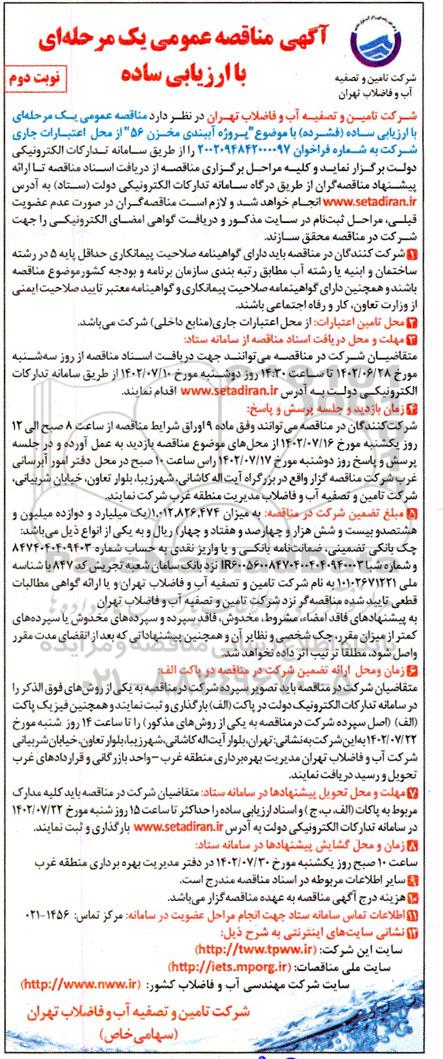 آگهی مناقصه عمومی یک مرحله‌ای
با ارزیابی ساده
نوبت دوم
شرکت تامین و تصفیه
آب و فاضلاب تهران
شرکت تامیـن و تصفیـه آب و فاضلاب تهـران در نظـر دارد مناقصه عمومی یـک مرحله‌ای
با ارزیابی ساده (فشرده) با موضوع "پروژه آببندی مخزن ۵۶" از محل اعتبـارات جاری
شرکت به شماره فراخوان ۲۰۰۲۰۹۴۸۴۲۰۰۰۰۹۷ را از طریق سامانه تـدارکات الکترونیکی
دولـت برگزار نمایـد و کلیـه مراحـل برگـزاری مناقصـه از دریافت اسناد مناقصه تـا ارائه
پیشنهاد مناقصه‌گران از طریق درگاه سـامانه تدارکات الکترونیکی دولت (ستاد) به آدرس
www.setadiran.ir انجام خواهد شـد و لازم اسـت مناقصه‌گـران در صورت عدم عضویت
قبلـی، مراحـل ثبت‌نام در سـایت مذکـور و دریافت گواهی امضـای الکترونیکـی را جهت
شـرکت در مناقصه محقق سـازند.
۱ شرکت کنندگان در مناقصه باید دارای گواهینامه صلاحیت پیمانکاری حداقل پایه ۵ در رشته
ساختمان و ابنیه یا رشته آب مطابق رتبه بندی سازمان برنامه و بودجه کشور موضوع مناقصه
باشند و همچنین دارای گواهینمامه صلاحیت پیمانکاری و گواهینامه معتبر تایید صلاحیت ایمنی
از وزارت تعاون، کار و رفاه اجتماعی باشند.
۲ محل تامین اعتبارات: از محل اعتبارات جاری(منابع داخلی) شرکت می‌باشد.
۳ مهلت و محل دریافت اسناد مناقصه از سامانه ستاد:
متقاضیـان شـرکت در مناقصـه می‌تواننـد جهت دریافـت اسـناد مناقصه از روز سه‌شـنبه
مورخ ۱۴۰۲/۰۶/۲۸ تا سـاعت ۱۴:۳۰ روز دوشـنبه مورخ ۱۴۰۲/۰۷/۱۰ از طریق سامانه تدارکات
الکترونیکـی دولـت بـه آدرس www.setadiran.ir اقدام نمایند.
۴ زمان بازدید و جلسه پرسش و پاسخ:
شرکت‌کنندگان در مناقصه می‌توانند وفق ماده ۹ اوراق شرایط مناقصه از ساعت ۸ صبح الی ۱۲
روز یکشنبه مورخ ۱۴۰۲/۰۷/۱۶ از محل‌های موضوع مناقصه بازدید به عمل آورده و در جلسه
پرسش و پاسخ روز دوشنبه مورخ ۱۴۰۲/۰۷/۱۷ راس ساعت ۱۰ صبح در محل دفتر امور آبرسانی
غرب شرکت مناقصه گزار واقع در بزرگراه آیت اله کاشانی، شهرزیبا، بلوار تعاون، خیابان شربیانی،
شرکت تامین و تصفیه آب و فاضلاب مدیریت منطقه غرب شرکت نمایند.
۵ مبلغ تضمین شرکت در مناقصه: به میزان ۱،۰۱۲،۸۲۶،۴۷۴(یک میلیارد و دوازده میلیون و
هشتصدو بیست و شش هزار و چهارصد و هفتاد و چهار) ریال و به یکی از انواع ذیل می‌باشد:
چک بانکی تضمینی، ضمانت‌نامه بانکی و یا واریز نقدی به حساب شماره ۸۴۷۴۰۴۰۹۴۰۳
و شماره شبا نزد بانک سامان شعبه تجریش کد ۸۴۷ با شناسه
ملی ۱۰۱۰۲۶۷۱۲۲۱ به نام شرکت تامین و تصفیه آب و فاضلاب تهران و یا ارائه گواهی مطالبات
قطعی تایید شده مناقصه‌گر نزد شرکت تامین و تصفیه آب و فاضلاب تهران
به پیشنهادهای فاقد امضاء، مشروط، مخدوش، فاقد سپرده و سپرده‌های مخدوش یا سپرده‌های
کمتر از میزان مقرر، چک شخصی و نظایر آن و همچنین پیشنهاداتی که بعد از انقضای مدت مقرر
واصل شود، مطلقا ترتیب اثر داده نخواهد شد.
۶ زمان و محل ارائه تضمین شرکت در مناقصه در پاکت الف:
متقاضیان شرکت در مناقصه باید تصویر سپرده شرکت در مناقصه به یکی از روش‌های فوق الذکر را
در سامانه تدارکات الکترونیک دولت در پاکت (الف) بارگذاری و ثبت نمایند و همچنین فیزیک پاکت
(الف) (اصل سپرده شرکت در مناقصه به یکی از روش‌های مذکور) را تا ساعت ۱۴ روز شنبه مورخ
۱۴۰۲/۰۷/۲۲ به این شرکت به نشانی: تهران، بلوار آیت اله کاشانی، شهرزیبا، بلوار تعاون، خیابان شربیانی
شرکت آب و فاضلاب تهران مدیریت بهره‌برداری منطقه غرب –واحد بازرگانی و قراردادهای غرب
تحویل و رسید دریافت نمایند.
۷ مهلت و محل تحویل پیشنهادها در سامانه ستاد: متقاضیان شرکت در مناقصه باید کلیه مدارک
مربوط به پاکات (الف، ب، ج ) و اسناد ارزیابی ساده را حداکثر تا ساعت ۱۵ روز شنبه مورخ ۱۴۰۲/۰۷/۲۲
در سامانه تدارکات الکترونیکی دولت به آدرس www.setadiran.ir بارگذاری و ثبت نمایند.
۸ زمان و محل گشایش پیشنهادها در سامانه ستاد:
ساعت ۱۰ صبح روز یکشنبه مورخ ۱۴۰۲/۰۷/۳۰ در دفتر مدیریت بهره برداری منطقه غرب
۹ سایر اطلاعات مربوطه در اسناد مناقصه مندرج است.
۱۰ هزینه درج آگهی مناقصه به عهده مناقصه‌گزار می‌باشد.
۱۱ اطلاعات تماس سامانه ستاد جهت انجام مراحل عضویت در سامانه: مرکز تماس: ۱۴۵۶-۰۲۱
۱۲ نشانی سایت‌های اینترنتی به شرح ذیل:
سایت این شرکت: (http://tww.tpww.ir)
سایت ملی مناقصات: (http://iets.mporg.ir)
سایت شرکت مهندسی آب و فاضلاب کشور: (http://www.nww.ir)
شرکت تامین و تصفیه آب و فاضلاب تهران
(سهامی خاص)